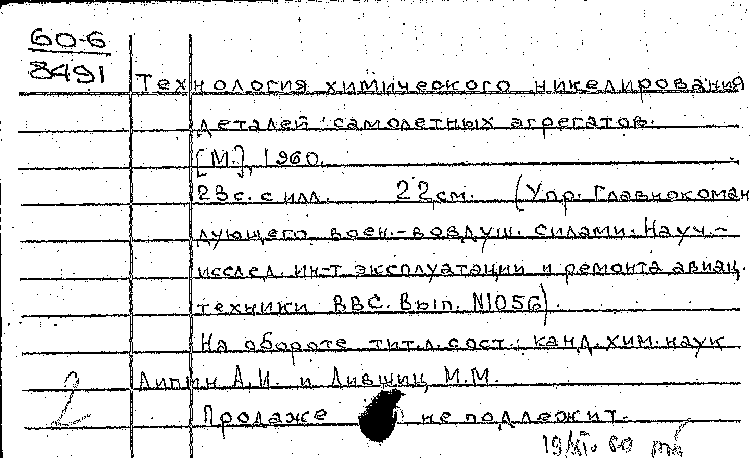 60-6
8491
Технология химического никелирования
деталей самолетных агрегатов.
[М.], 1960.
23с. с илл. 22см. (Упр. Главнокоман
дующего воен.-воздуш. силами. Науч.-
исслед. ин-т эксплуатации и ремонта авиац.
техники ВВС. Вып. №1056)
На обороте тит. л. сост.: канд. хим. наук
Липин А.И. и Лившиц М.М.
Продаже не подлежит.
2
19/VI. 60